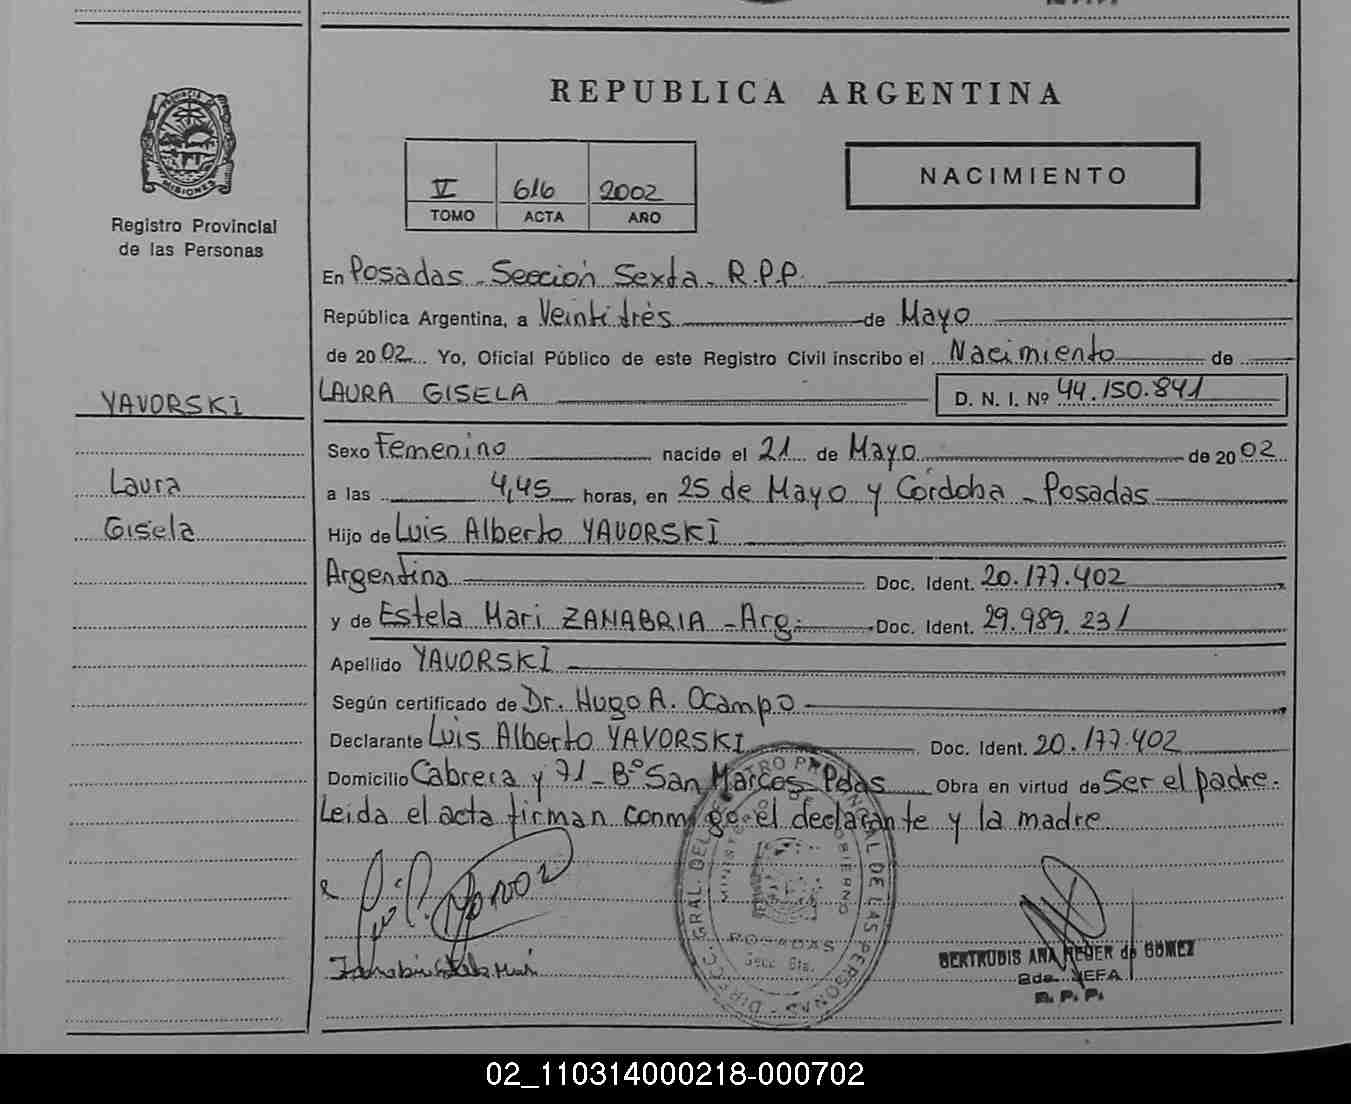 REPUBLICA ARGENTINA
PROVINCIA DE
MISIONES
Registro Provincial
de las Personas
V 616 2002
TOMO ACTA AÑO
NACIMIENTO
En Posadas - Sección Sexta - R.P.P.
República Argentina, a Veintitrés de Mayo
de 2002 Yo, Oficial Público de este Registro Civil inscribo el Nacimiento de
LAURA GISELA D. N. I. Nº 44.150.841
YAVORSKI
Laura
Gisela
Sexo Femenino nacido el 21 de Mayo de 2002
a las 4,45 horas, en 25 de Mayo y Córdoba - Posadas
Hijo de Luis Alberto YAVORSKI
Argentina Doc. Ident. 20.177.402
y de Estela Mari ZANABRIA - Arg. Doc. Ident. 29.989.231
Apellido YAVORSKI
Según certificado de Dr. Hugo A. Ocampo
Declarante Luis Alberto YAVORSKI Doc. Ident. 20.177.402
Domicilio Cabrera y 71 - Bº San Marcos - Pdas Obra en virtud de Ser el padre.
Leida el acta firman conmigo el declarante y la madre
DIRECC. GRAL. DEL REGISTRO PROVINCIAL DE LAS PERSONAS
MINISTERIO DE GOBIERNO
POSADAS
Secc. 6ta.
GERTRUDIS ANA REGER de GOMEZ
JEFA
R. P. P.
02_110314000218-000702